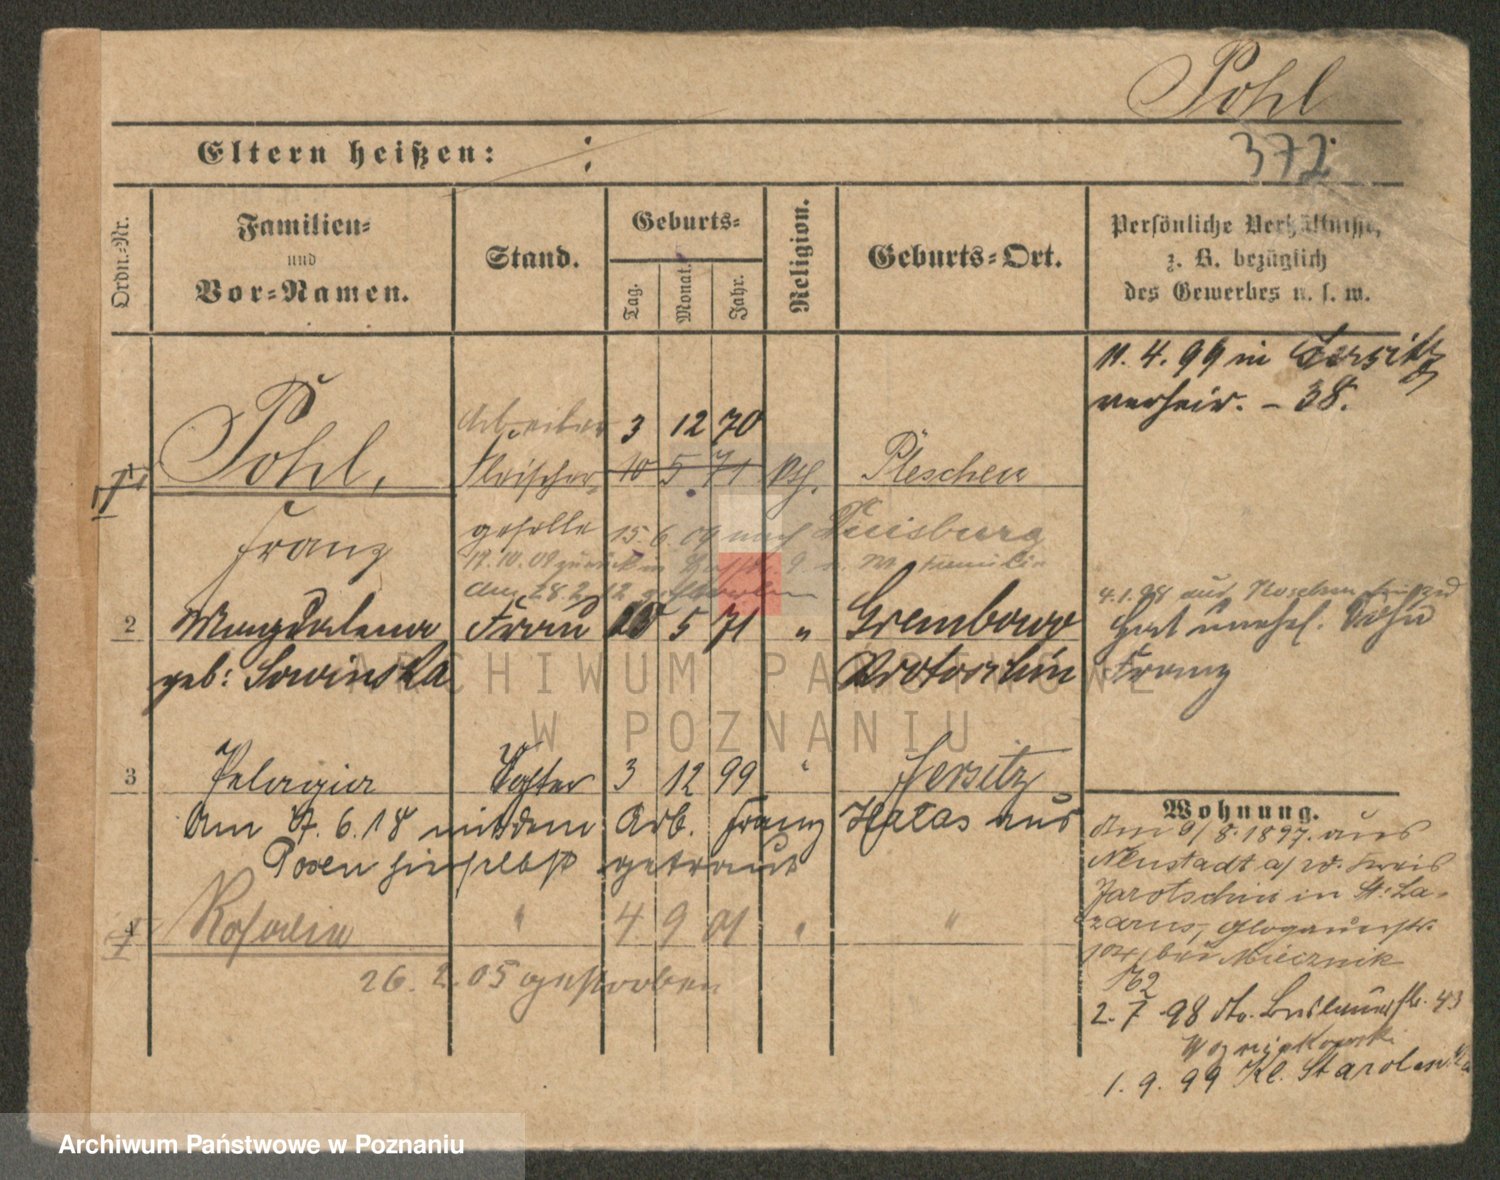 Pohl
372.
Eltern heißen:
Ordn.-Nr.
Familien-
und
Vor-Namen.
Stand.
Geburts-
Tag.
Monat.
Jahr.
Religion.
Geburts-Ort.
Persönliche Verhältnisse,
z. B. bezüglich
des Gewerbes u. s. w.
11. 4. 99 in Jersitz
verheir. - 38.
Arbeiter 3 12 70
1 Pohl, Fleischer- 10 5 71 kth. Pleschen
Franz geselle 15. 6. 09 nach Duisburg
11. 10. 09 zurück in
am 28. 2. 12 gestorben
4. 1. 98 aus
2 Magdalena Frau 10 5 71 " Grembowo
Hat unehel. Sohn
geb: Sowinska Krotoschin
Franz
3 Pelagia Tochter 3 12 99 " Jersitz
Am 17. 6. 18 mit dem Arb. Franz Hałas aus
Posen hierselbst getraut
4 Rosalia " 4 9 01 " "
26. 2. 05 gestorben
Wohnung.
Am 9/8. 1897. aus
Neustadt a/W. Kreis
Jarotschin in St. La-
zarus, Glogauerstr.
104, bei Miecznik
K2
2. 7 98 Breslauerstr. 43
1. 9. 99 Kl. Starolenka
ARCHIWUM PAŃSTWOWE
W POZNANIU
Archiwum Państwowe w Poznaniu